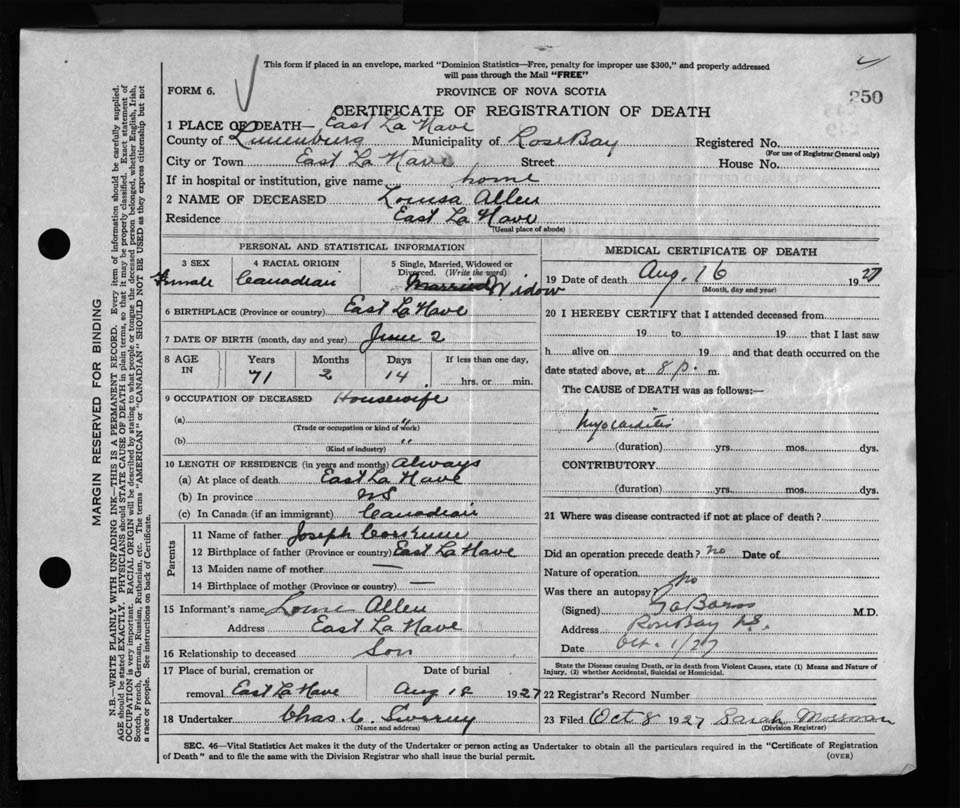 This form if placed in an envelope, marked "Dominion Statistics—Free, penalty for improper use $300," and properly addressed
will pass through the Mail "FREE"
FORM 6.
PROVINCE OF NOVA SCOTIA
250
CERTIFICATE OF REGISTRATION OF DEATH
1 PLACE OF DEATH— East La Have
County of Lunenburg Municipality of Rose Bay Registered No.
(For use of Registrar General only)
City or Town East La Have Street House No.
If in hospital or institution, give name home
2 NAME OF DECEASED Louisa Allen
Residence East La Have
(Usual place of abode)
PERSONAL AND STATISTICAL INFORMATION
3 SEX 4 RACIAL ORIGIN 5 Single, Married, Widowed or Divorced. (Write the word)
Female Canadian Married Widow
6 BIRTHPLACE (Province or country) East La Have
7 DATE OF BIRTH (month, day and year) June 2
8 AGE IN Years Months Days If less than one day,
71 2 14 hrs. or min.
9 OCCUPATION OF DECEASED Housewife
(a) "
(Trade or occupation or kind of work)
(b) "
(Kind of industry)
10 LENGTH OF RESIDENCE (in years and months) Always
(a) At place of death East La Have
(b) In province NS
(c) In Canada (if an immigrant) Canadian
Parents
11 Name of father Joseph
12 Birthplace of father (Province or country) East La Have
13 Maiden name of mother —
14 Birthplace of mother (Province or country) —
15 Informant's name Allen
Address East La Have
16 Relationship to deceased Son
17 Place of burial, cremation or Date of burial
removal East La Have Aug 18 1927
18 Undertaker Chas. C.
(Name and address)
MEDICAL CERTIFICATE OF DEATH
19 Date of death Aug. 16 1927
(Month, day and year)
20 I HEREBY CERTIFY that I attended deceased from
19 to 19 that I last saw
h alive on 19 and that death occurred on the
date stated above, at 8 p. m.
The CAUSE of DEATH was as follows:—
Myocarditis
(duration) yrs. mos. dys.
CONTRIBUTORY
(duration) yrs. mos. dys.
21 Where was disease contracted if not at place of death?
Did an operation precede death? no Date of
Nature of operation
Was there an autopsy? no
(Signed) M.D.
Address Rose Bay N.S.
Date Oct. 1/27
State the Disease causing Death, or in death from Violent Causes, state (1) Means and Nature of
Injury, (2) whether Accidental, Suicidal or Homicidal.
22 Registrar's Record Number
23 Filed Oct 8 1927 Sarah Mossman
(Division Registrar)
SEC. 46—Vital Statistics Act makes it the duty of the Undertaker or person acting as Undertaker to obtain all the particulars required in the "Certificate of Registration
of Death" and to file the same with the Division Registrar who shall issue the burial permit.
(OVER)
MARGIN RESERVED FOR BINDING
N.B.—WRITE PLAINLY WITH UNFADING INK—THIS IS A PERMANENT RECORD. Every item of information should be carefully supplied.
AGE should be stated EXACTLY. PHYSICIANS should STATE CAUSE OF DEATH in plain terms, so that it may be properly classified. Exact statement of
OCCUPATION is very important. RACIAL ORIGIN will be described by stating to what people or tongue the deceased person belonged, whether English, Irish,
Scotch, French, German, Russian, Ruthenian, etc. The terms "AMERICAN" or "CANADIAN" SHOULD NOT BE USED as they express citizenship but not
a race or people. See instructions on back of Certificate.